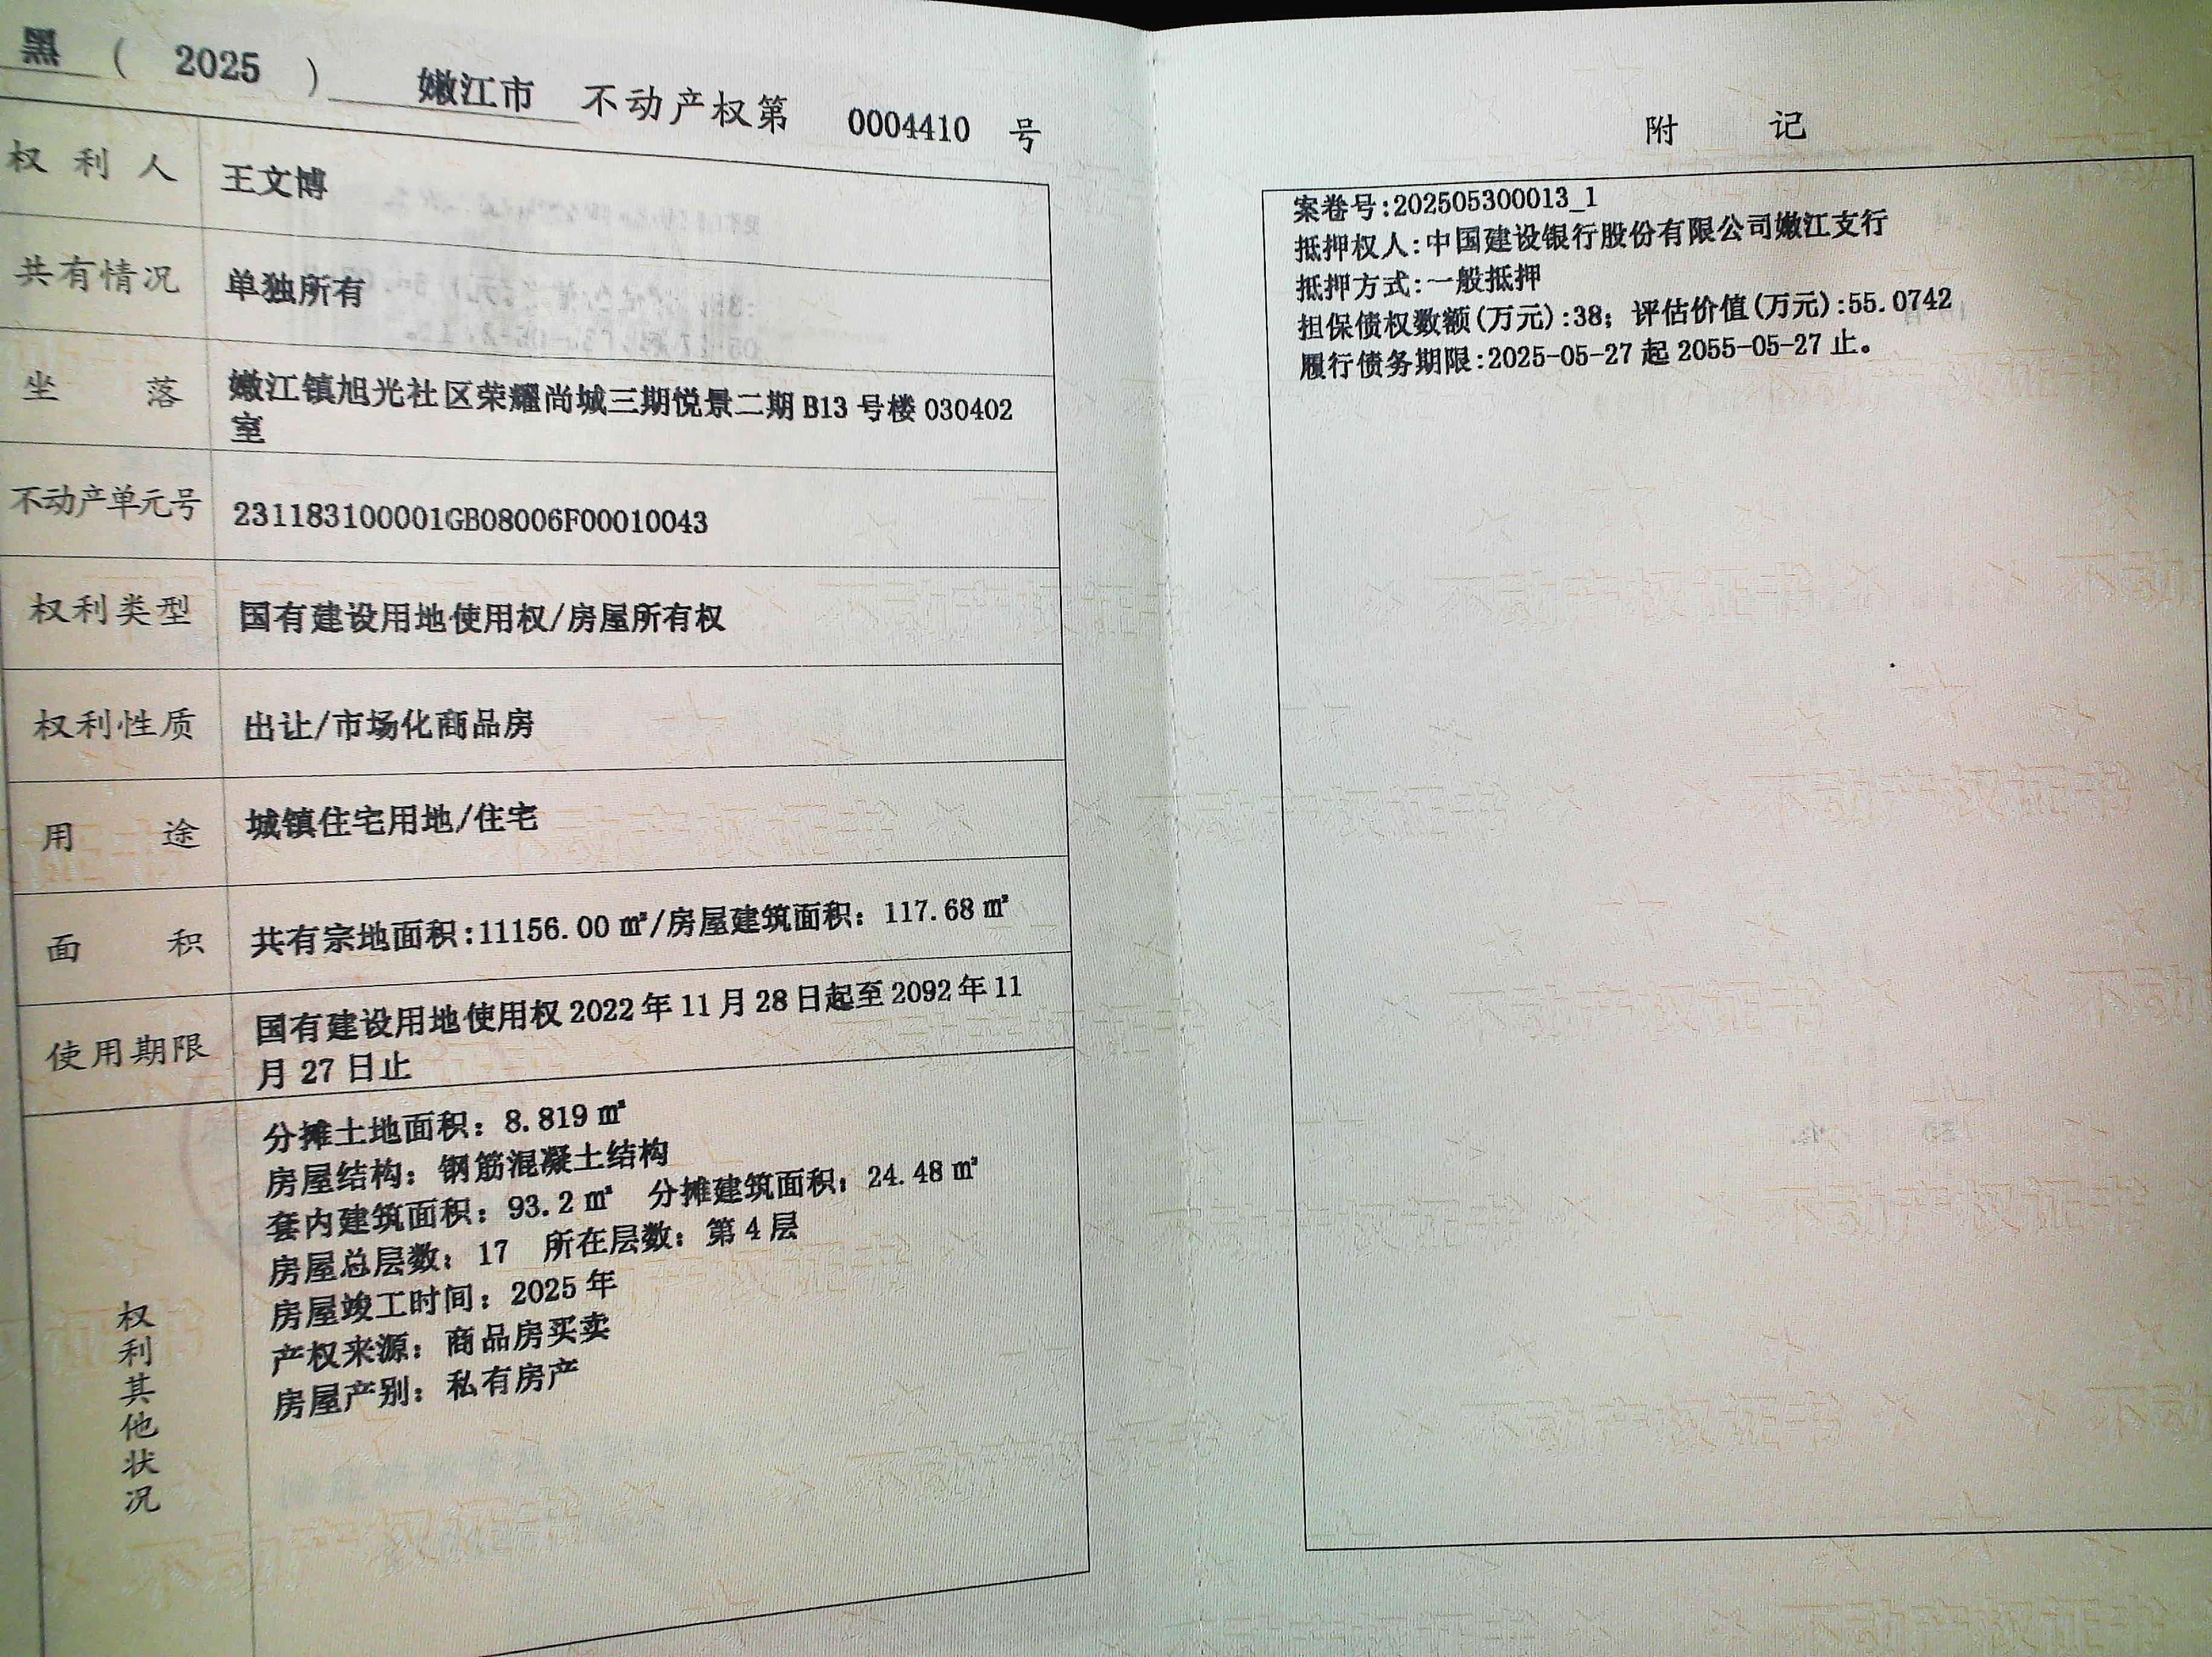 黑 ( 2025 ) 嫩江市 不动产权第 0004410 号
权利人 王文博
共有情况 单独所有
坐落 嫩江镇旭光社区荣耀尚城三期悦景二期 B13 号楼 030402
室
不动产单元号 231183100001GB08006F00010043
权利类型 国有建设用地使用权/房屋所有权
权利性质 出让/市场化商品房
用途 城镇住宅用地/住宅
面积 共有宗地面积:11156.00 ㎡/房屋建筑面积: 117.68 ㎡
使用期限 国有建设用地使用权 2022 年 11 月 28 日起至 2092 年 11
月 27 日止
权利其他状况
分摊土地面积: 8.819 ㎡
房屋结构: 钢筋混凝土结构
套内建筑面积: 93.2 ㎡ 分摊建筑面积: 24.48 ㎡
房屋总层数: 17 所在层数: 第 4 层
房屋竣工时间: 2025 年
产权来源: 商品房买卖
房屋产别: 私有房产
附记
案卷号:202505300013_1
抵押权人:中国建设银行股份有限公司嫩江支行
抵押方式:一般抵押
担保债权数额(万元):38; 评估价值(万元):55.0742
履行债务期限:2025-05-27 起 2055-05-27 止。